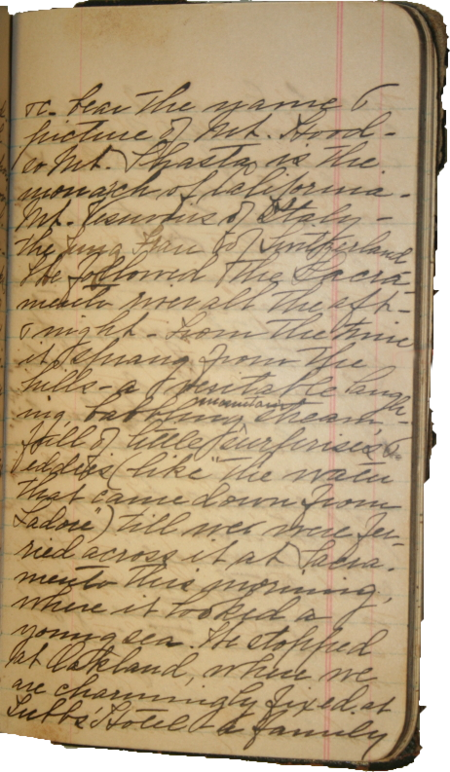 &c. bear the name &
picture of Mt. Hood -
so Mt. Shasta is the
monarch of California -
Mt. Vesuvius of Italy -
the Jung Frau of Switzerland
We followed the Sacra-
mento river all the aft -
& night - From the time
it sprang from the
hills - a veritable laugh-
ing, babbling mountain stream -
full of little surprises &
eddies (like "the water
that came down from
Ladore") till we were fer-
ried across it at Sacra-
mento this morning,
where it looked a
young sea. We stopped
at Oakland, where we
are charmingly fixed at
Tubbs' Hotel a family